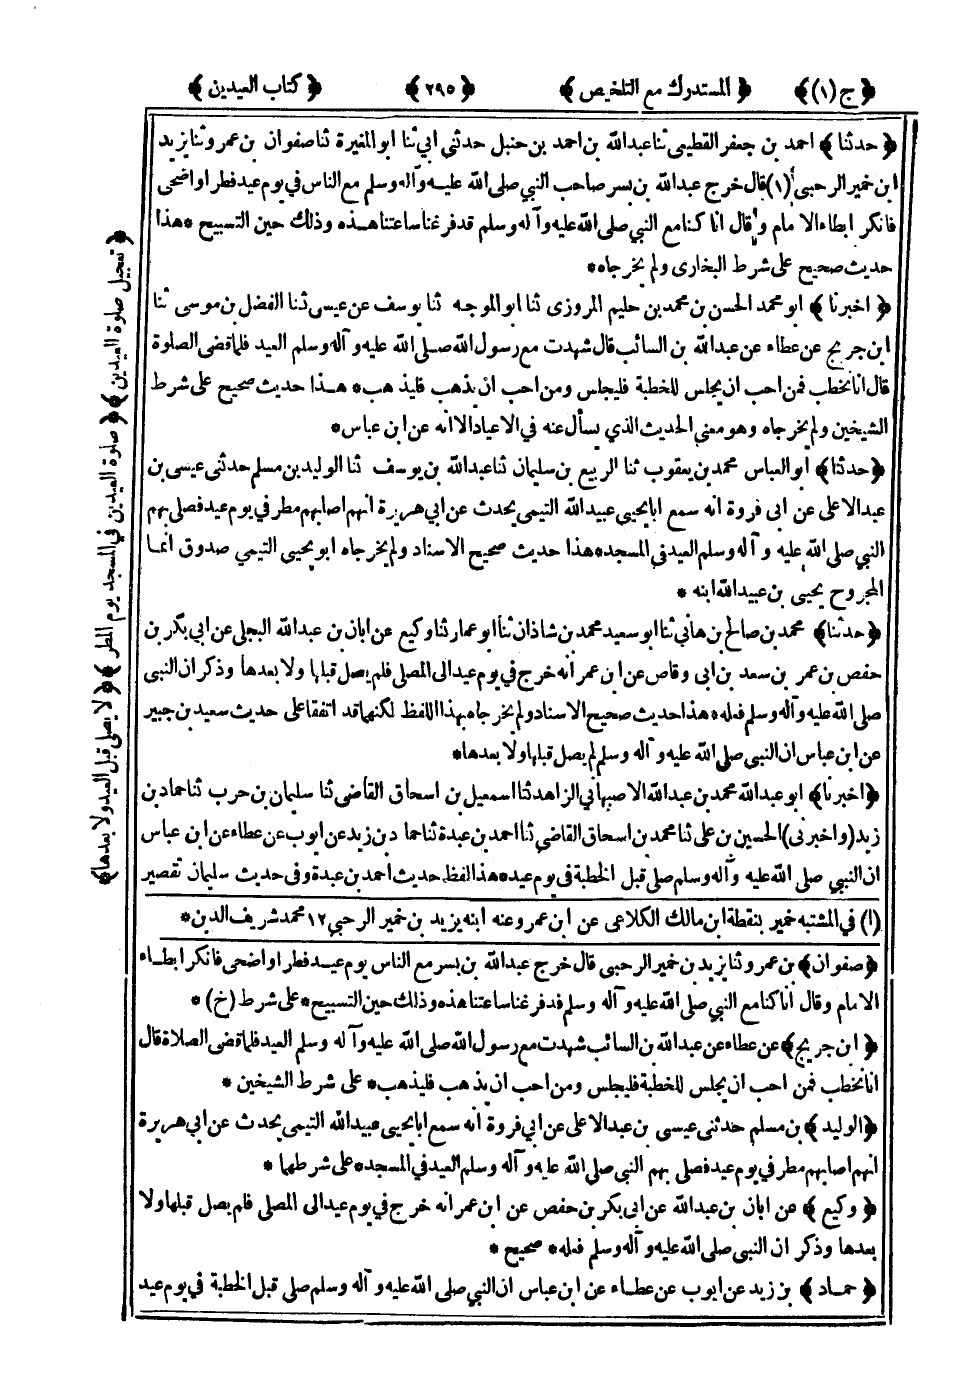 ﴿ ج (١) ﴾ ﴿ المستدرك مع التلخيص ﴾ ﴿ ٢٩٥ ﴾ ﴿ كتاب العيدين ﴾
﴿ حدثنا ﴾ احمد بن جعفر القطيعى ثنا عبدالله بن احمد بن حنبل حدثني ابي ثنا ابو المغيرة ثنا صفوان بن عمرو ثنا يزيد
ابن خمير الرحبي (١) قال خرج عبدالله بن بسر صاحب النبي صلى الله عليه وآله وسلم مع الناس في يوم عيد فطر او اضحى
فانكر ابطاء الامام وقال انا كنا مع النبي صلى الله عليه وآله وسلم قد فرغنا ساعتنا هذه وذلك حين التسبيح * هذا
حديث صحيح على شرط البخارى ولم يخرجاه *
﴿ اخبرنا ﴾ ابو محمد الحسن بن محمد بن حليم المروزى ثنا ابو الموجه ثنا يوسف عن عيسى ثنا الفضل بن موسى ثنا
ابن جريج عن عطاء عن عبدالله بن السائب قال شهدت مع رسول الله صلى الله عليه وآله وسلم العيد فلما قضى الصلوة
قال انا نخطب فمن احب ان يجلس للخطبة فليجلس ومن احب ان يذهب فليذهب * هذا حديث صحيح على شرط
الشيخين ولم يخرجاه وهو معنى الحديث الذي يسأل عنه في الاعياد الا انه عن ابن عباس *
﴿ حدثنا ﴾ ابو العباس محمد بن يعقوب ثنا الربيع بن سليمان ثنا عبدالله بن يوسف ثنا الوليد بن مسلم حدثنى عيسى بن
عبد الاعلى عن ابى فروة انه سمع ابا يحيى عبيد الله التيمى يحدث عن ابي هريرة انهم اصابهم مطر في يوم عيد فصلى بهم
النبي صلى الله عليه وآله وسلم العيد في المسجد * هذا حديث صحيح الاسناد ولم يخرجاه ابو يحيى التيمى صدوق انما
المجروح يحيى بن عبيد الله ابنه *
﴿ حدثنا ﴾ محمد بن صالح بن هانئ ثنا ابو سعيد محمد بن شاذان ثنا ابو عمار ثنا وكيع عن ابان بن عبدالله البجلى عن ابي بكر بن
حفص بن عمر بن سعد بن ابى وقاص عن ابن عمر انه خرج في يوم عيد الى المصلى فلم يصل قبلها ولا بعدها وذكر ان النبي
صلى الله عليه وآله وسلم فعله * هذا حديث صحيح الاسناد ولم يخرجاه بهذا اللفظ لكنهما قد اتفقا على حديث سعيد بن جبير
عن ابن عباس ان النبي صلى الله عليه وآله وسلم لم يصل قبلها ولا بعدها *
﴿ اخبرنا ﴾ ابو عبدالله محمد بن عبدالله الاصبهاني الزاهد ثنا اسمعيل بن اسحاق القاضى ثنا سليمان بن حرب ثنا حماد بن
زيد (واخبرنى) الحسين بن على ثنا محمد بن اسحاق القاضي ثنا احمد بن عبدة ثنا حماد بن زيد عن ايوب عن عطاء عن ابن عباس
ان النبي صلى الله عليه وآله وسلم صلى قبل الخطبة فى يوم عيد * هذا لفظ حديث احمد بن عبدة وفى حديث سليمان تقصير
(ا) في المشتبه خمير بنقطة ابن مالك الكلاعى عن ابن عمرو وعنه ابنه يزيد بن خمير الرحبي ١٢ محمد شريف الدين *
﴿ صفوان ﴾ بن عمرو ثنا يزيد بن خمير الرحبى قال خرج عبدالله بن بسر مع الناس يوم عيد فطر او اضحى فانكر ابطاء
الامام وقال انا كنا مع النبي صلى الله عليه وآله وسلم قد فرغنا ساعتنا هذه وذلك حين التسبيح * على شرط (خ) *
﴿ ابن جريج ﴾ عن عطاء عن عبدالله بن السائب شهدت مع رسول الله صلى الله عليه وآله وسلم العيد فلما قضى الصلاة قال
انا نخطب فمن احب ان يجلس للخطبة فليجلس ومن احب ان يذهب فليذهب * على شرط الشيخين *
﴿ الوليد ﴾ بن مسلم حدثنى عيسى بن عبد الاعلى عن ابي فروة انه سمع ابا يحيى عبيد الله التيمى يحدث عن ابي هريرة
انهم اصابهم مطر في يوم عيد فصلى بهم النبي صلى الله عليه وآله وسلم العيد في المسجد * على شرطهما *
﴿ وكيع ﴾ عن ابان بن عبدالله عن ابى بكر بن حفص عن ابن عمر انه خرج في يوم عيد الى المصلى فلم يصل قبلها ولا
بعدها وذكر ان النبي صلى الله عليه وآله وسلم فعله * صحيح *
﴿ حماد ﴾ بن زيد عن ايوب عن عطاء عن ابن عباس ان النبي صلى الله عليه وآله وسلم صلى قبل الخطبة في يوم عيد
﴿ تعجيل صلوة العيدين ﴾ ﴿ صلوة العيدين في المسجد يوم المطر ﴾ ﴿ لا يصلى قبل العيد ولا بعدها ﴾